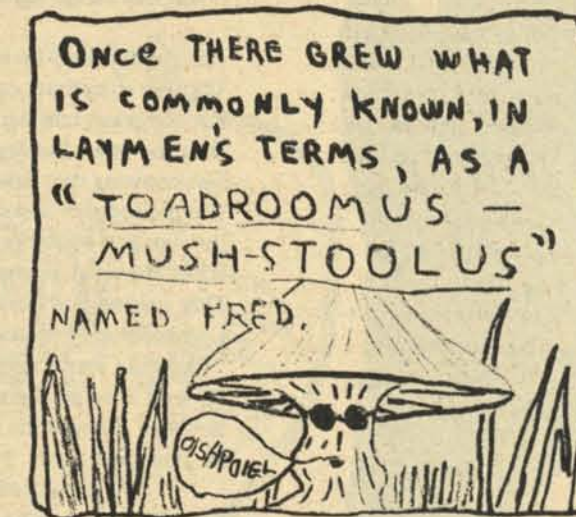 ONCE THERE GREW WHAT
IS COMMONLY KNOWN, IN
LAYMEN'S TERMS, AS A
"TOADROOMUS —
MUSH-STOOLUS"
NAMED FRED.